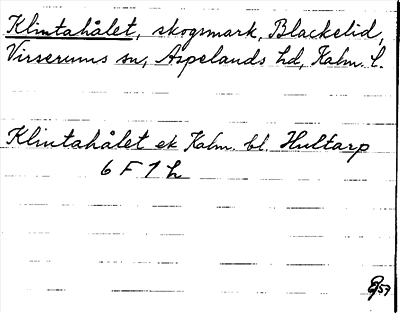 Klintahålet, skogsmark, Blackelid,
Virserums sn, Aspelands hd, Kalm. l.
Klintahålet ek Kalm. bl. Hultarp
6 F 7 h